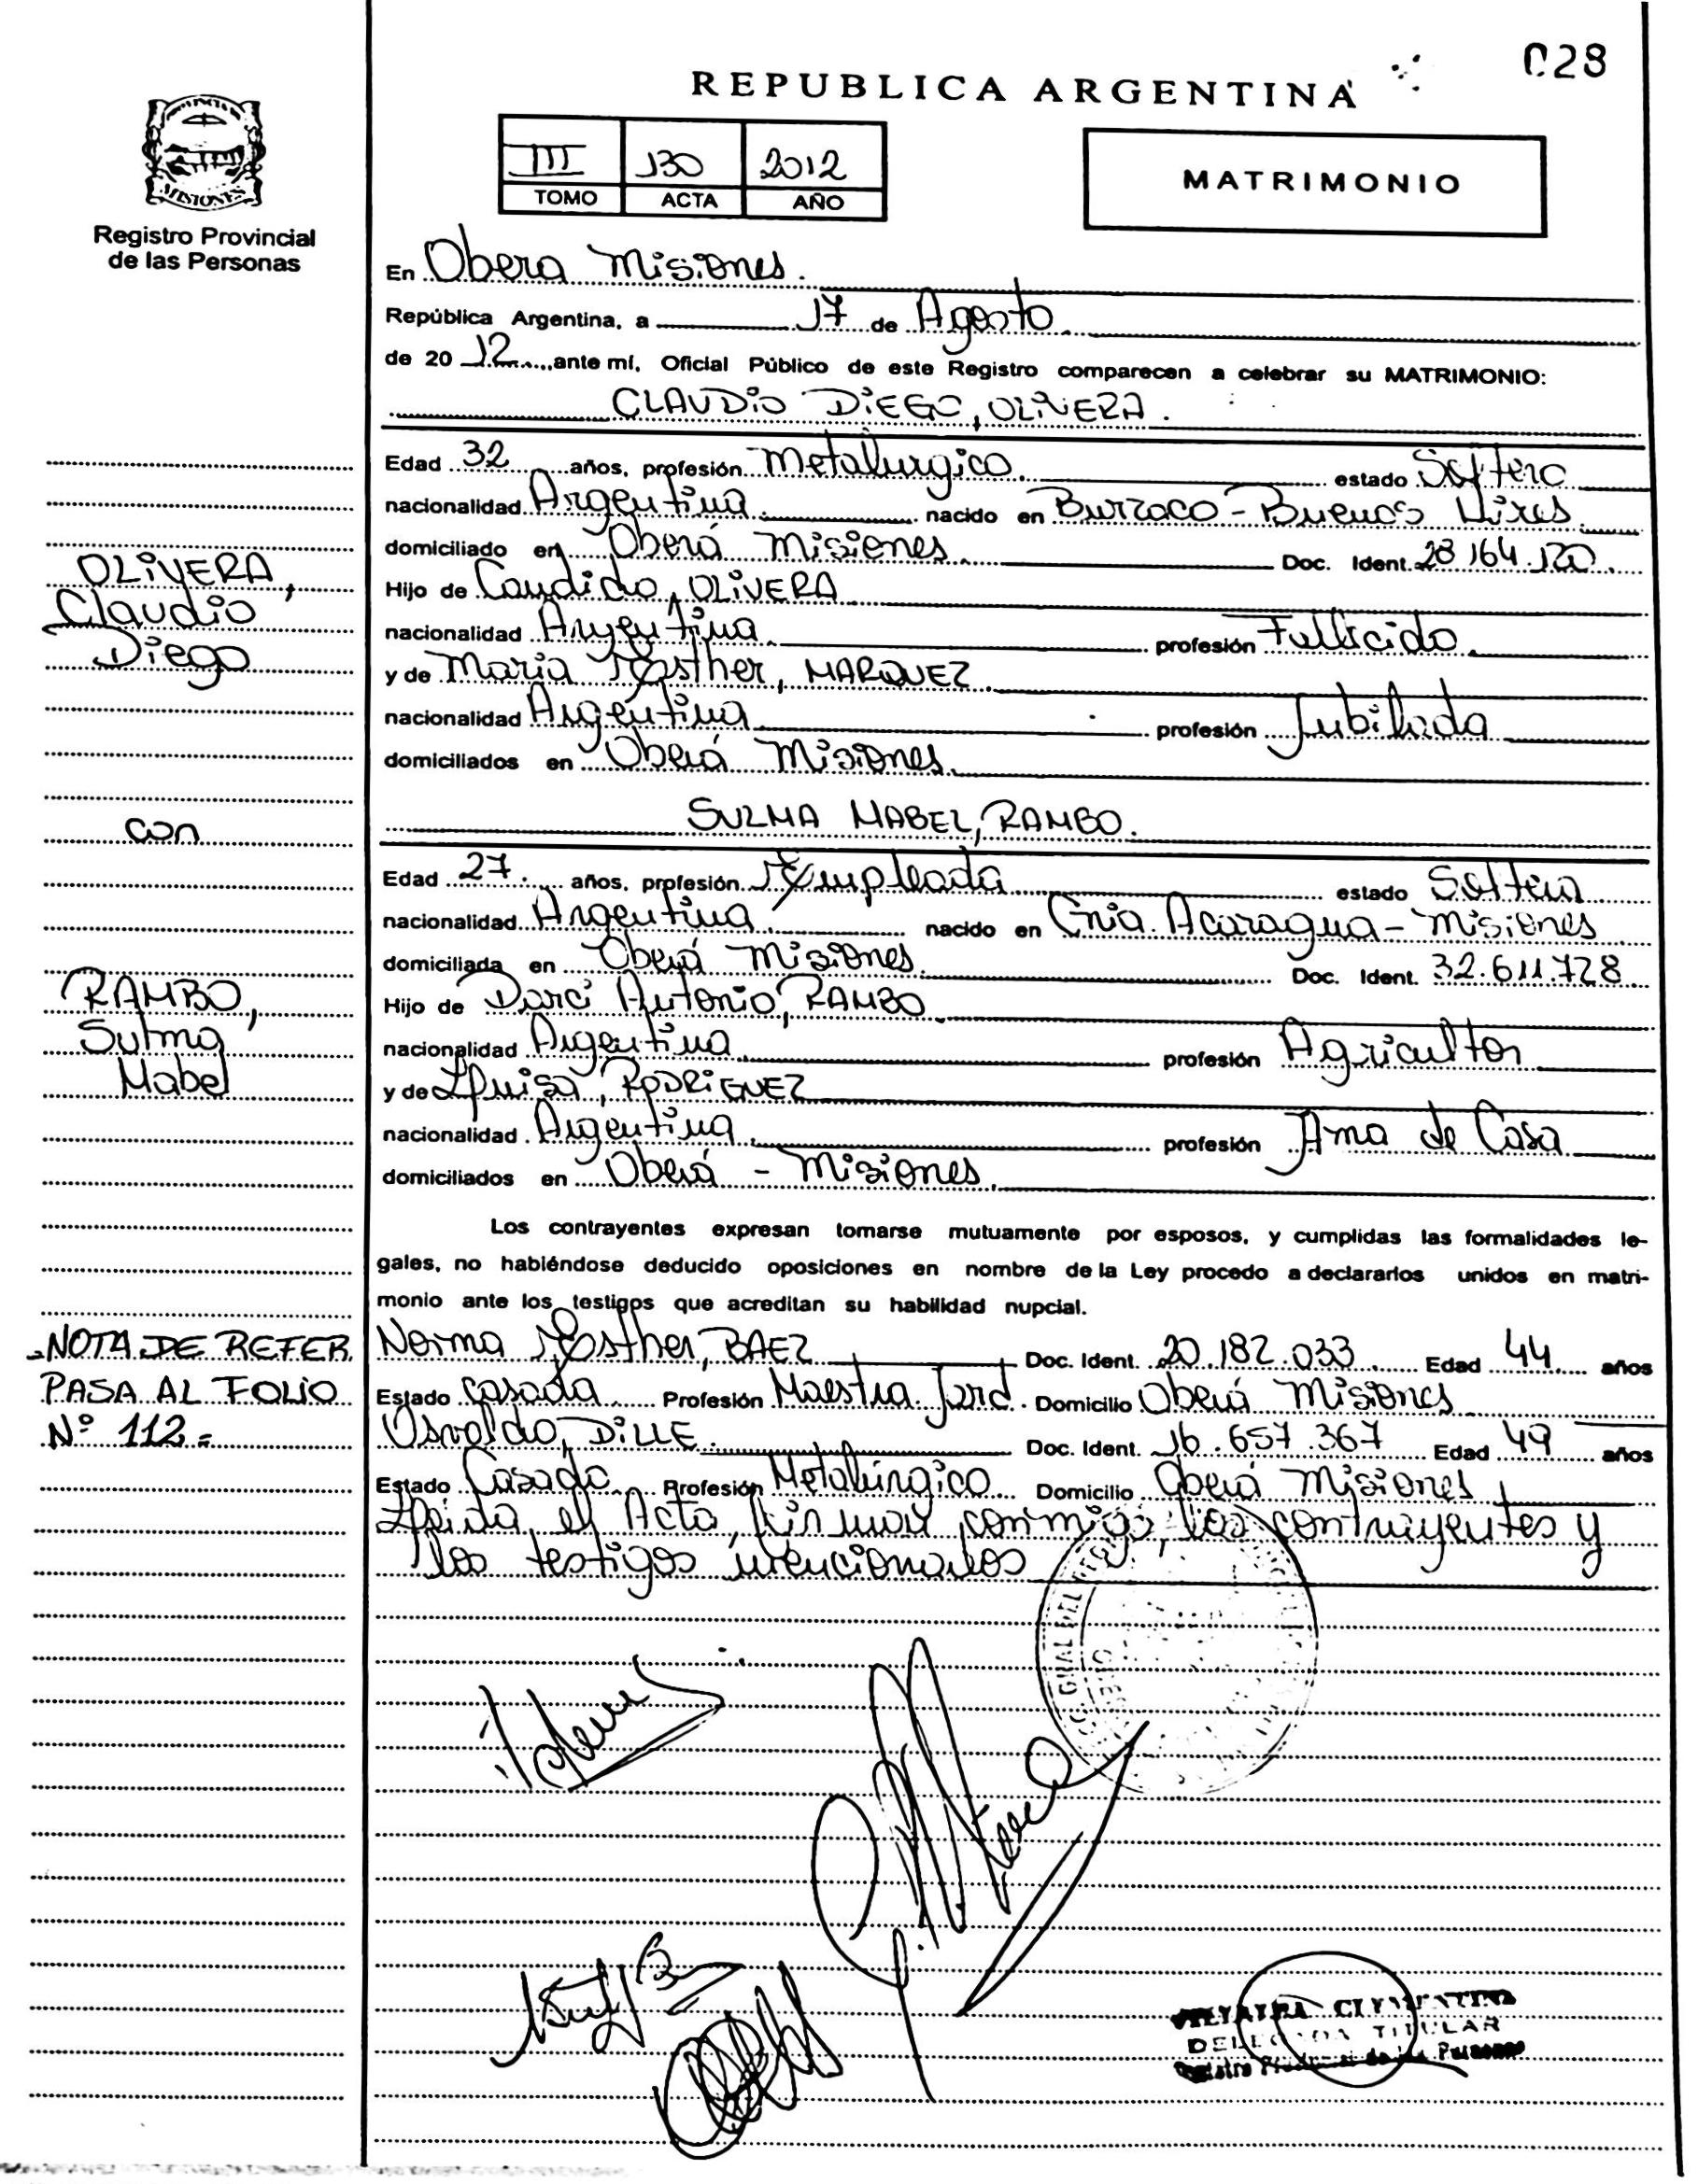 028
REPUBLICA ARGENTINA
III 130 2012
TOMO ACTA AÑO
MATRIMONIO
MISIONES
Registro Provincial
de las Personas
En Obera Misiones.
República Argentina, a 17 de Agosto
de 2012, ante mí, Oficial Público de este Registro comparecen a celebrar su MATRIMONIO:
CLAUDIO DIEGO, OLIVERA.
Edad 32 años, profesión Metalurgico. estado Soltero
nacionalidad Argentina. nacido en Burzaco - Buenos Aires
domiciliado en Oberá Misiones. Doc. Ident. 28.164.120.
Hijo de Candido, OLIVERA
nacionalidad Argentina. profesión Fallecido.
y de Maria Esther, MARQUEZ.
nacionalidad Argentina. profesión Jubilada
domiciliados en Oberá Misiones.
SULMA MABEL, RAMBO.
Edad 27. años, profesión Empleada estado Soltera
nacionalidad Argentina. nacido en Cnia. Acaragua - Misiones
domiciliada en Oberá Misiones. Doc. Ident. 32.611.728
Hijo de Darci Antonio, RAMBO
nacionalidad Argentina. profesión Agricultor
y de Luisa, RODRIGUEZ
nacionalidad Argentina. profesión Ama de Casa
domiciliados en Oberá - Misiones.
Los contrayentes expresan tomarse mutuamente por esposos, y cumplidas las formalidades le-
gales, no habiéndose deducido oposiciones en nombre de la Ley procedo a declararlos unidos en matri-
monio ante los testigos que acreditan su habilidad nupcial.
Norma Esther, BAEZ Doc. Ident. 20.182.033 Edad 44 años
Estado casada Profesión Maestra Jard. Domicilio Oberá Misiones
Osvaldo, DILLE. Doc. Ident. 16.657.367 Edad 49 años
Estado Casado Profesión Metalúrgico Domicilio Oberá Misiones
Leída el Acta, firman conmigo, los contrayentes y
los testigos mencionados
OLIVERA,
Claudio
Diego
con
RAMBO,
Sulma
Mabel
NOTA DE REFER
PASA AL FOLIO
Nº 112=
DELEGADA TITULAR
Registro Provincial de las Personas